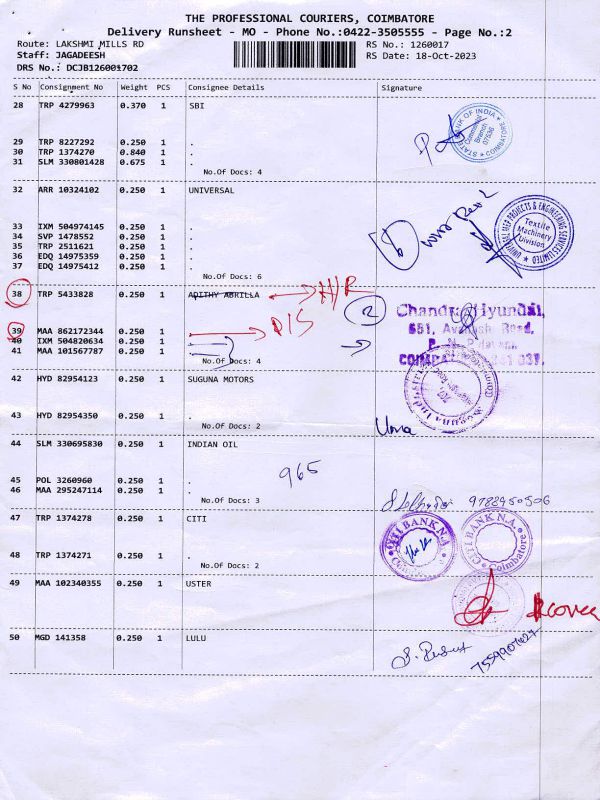 THE PROFESSIONAL COURIERS, COIMBATORE
Delivery Runsheet - MO - Phone No.:0422-3505555 - Page No.:2
Route: LAKSHMI MILLS RD RS No.: 1260017
Staff: JAGADEESH RS Date: 18-Oct-2023
DRS No.: DCJB12600702
S No Consignment No Weight PCS Consignee Details Signature
28 TRP 4279963 0.370 1 SBI
STATE BANK OF INDIA Commercial Branch 07536 COIMBATORE
29 TRP 8227292 0.250 1 .
30 TRP 1374270 0.840 1 .
31 SLM 330801428 0.675 1 .
No.Of Docs: 4
32 ARR 10324102 0.250 1 UNIVERSAL
UNIVERSAL MEP PROJECTS & ENGINEERING SERVICES LIMITED Textile Machinery Division
33 IXM 504974145 0.250 1 .
34 SVP 1478552 0.250 1 .
35 TRP 2511621 0.250 1 .
36 EDQ 14975359 0.250 1 .
37 EDQ 14975412 0.250 1 .
No.Of Docs: 6
38 TRP 5433828 0.250 1 ADITHY ABRILLA H/R
2
Chandra Hyundai,
39 MAA 862172344 0.250 1 D/S
651, Avinashi Road,
40 IXM 504820634 0.250 1
41 MAA 101567787 0.250 1
No.Of Docs: 4
42 HYD 82954123 0.250 1 SUGUNA MOTORS
43 HYD 82954350 0.250 1 .
No.Of Docs: 2
Uma
44 SLM 330695830 0.250 1 INDIAN OIL
965
45 POL 3260960 0.250 1 .
46 MAA 295247114 0.250 1 .
No.Of Docs: 3
9788950506
47 TRP 1374278 0.250 1 CITI
CITI BANK N.A.
CITI BANK N.A. Coimbatore
48 TRP 1374271 0.250 1 .
No.Of Docs: 2
49 MAA 102340355 0.250 1 USTER
50 MGD 141358 0.250 1 LULU